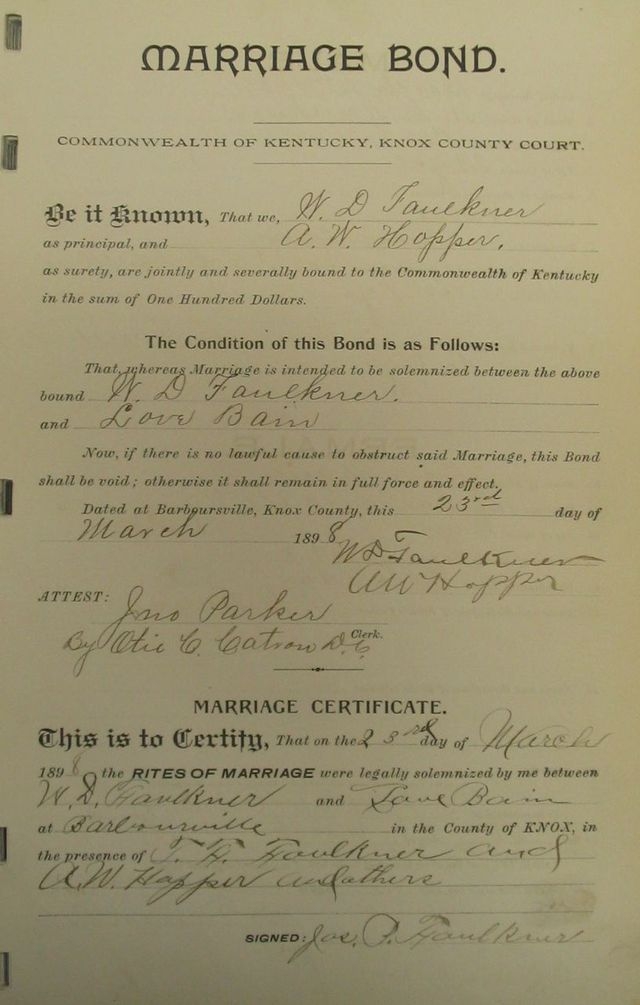 MARRIAGE BOND.
COMMONWEALTH OF KENTUCKY, KNOX COUNTY COURT.
Be it Known, That we, W. D Faulkner
as principal, and A. W. Hopper,
as surety, are jointly and severally bound to the Commonwealth of Kentucky
in the sum of One Hundred Dollars.
The Condition of this Bond is as Follows:
That, whereas Marriage is intended to be solemnized between the above
bound W. D Faulkner.
and Love Bain
Now, if there is no lawful cause to obstruct said Marriage, this Bond
shall be void; otherwise it shall remain in full force and effect.
Dated at Barboursville, Knox County, this 23rd day of
March 1898
W D Faulkner
A W Hopper
ATTEST:
Jno Parker
Clerk.
By Otie C. Catron D.C.
MARRIAGE CERTIFICATE.
This is to Certify, That on the 23rd day of March
1898 the RITES OF MARRIAGE were legally solemnized by me between
W. D. Faulkner and Love Bain
at Barbourville in the County of KNOX, in
the presence of T. H. Faulkner and
A. W. Hopper and others
SIGNED: Jos. P. Faulkner